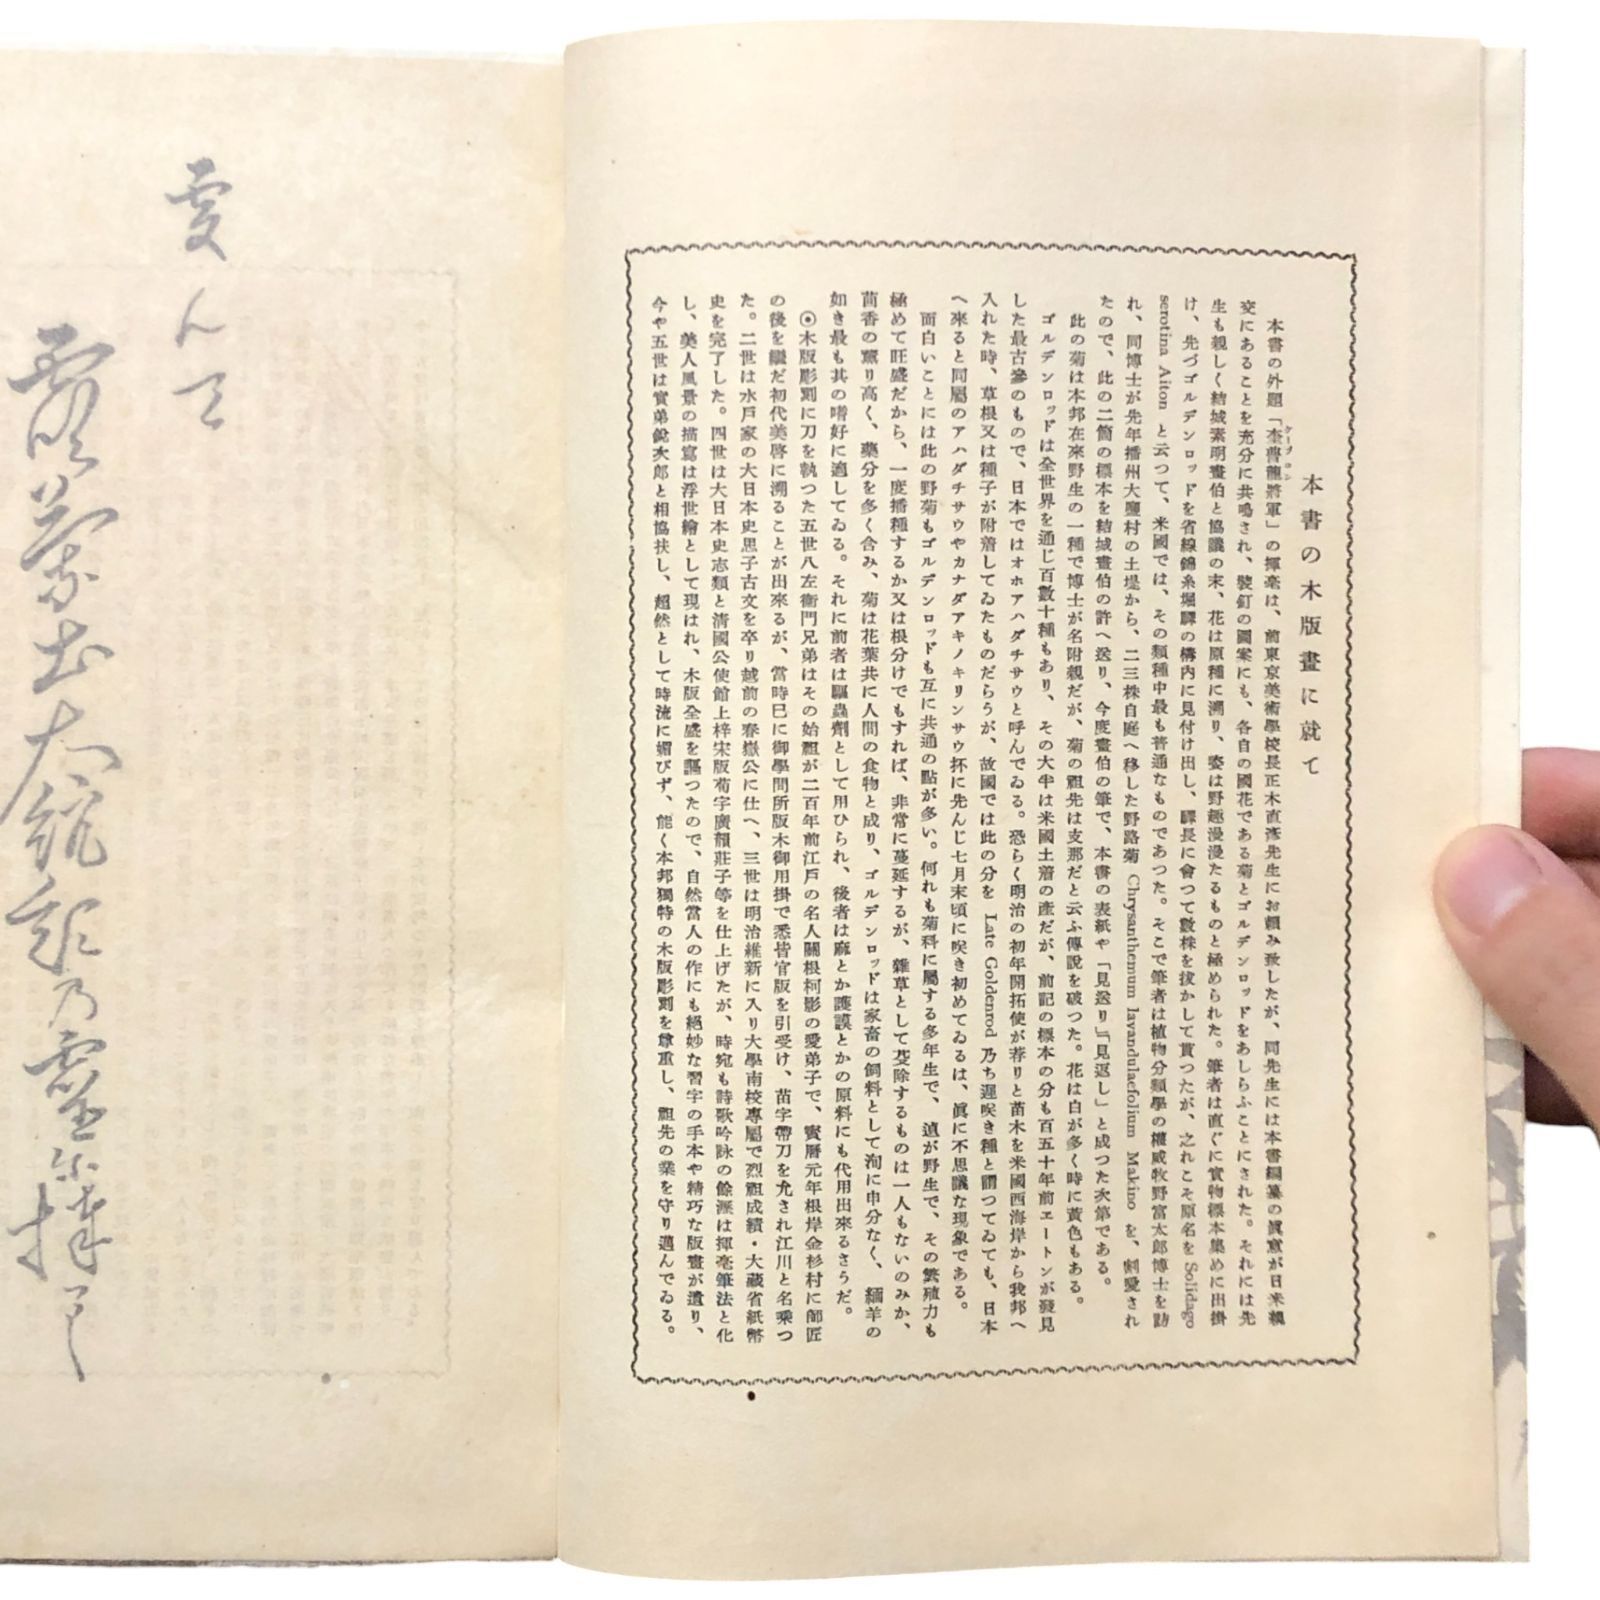 本書の木版畫に就て
本書の外題「奎普龍將軍」の揮毫は、前東京美術學校長正木直彥先生にお賴み致したが、同先生には本書編纂の眞意が日米親
ケープロン
交にあることを充分に共鳴され、裝釘の圖案にも、各自の國花である菊とゴルデンロッドをあしらふことにされた。それには先
生も親しく結城素明畫伯と協議の末、花は原種に溯り、姿は野趣漫漫たるものと極められた。筆者は直ぐに實物標本集めに出掛
け、先づゴルデンロッドを省線錦糸堀驛の構内に見付け出し、驛長に會つて數株を拔かして貰つたが、之れこそ原名を Solidago
serotina Aiton と云つて、米國では、その類種中最も普通なものであつた。そこで筆者は植物分類學の權威牧野富太郎博士を訪
れ、同博士が先年播州大鹽村の土堤から、二三株自庭へ移した野路菊 Chrysanthemum lavandulaefolium Makino を、割愛され
たので、此の二箇の標本を結城畫伯の許へ送り、今度畫伯の筆で、本書の表紙や「見送り」「見返し」と成つた次第である。
此の菊は本邦在來野生の一種で博士が名附親だが、菊の祖先は支那だと云ふ傳說を破つた。花は白が多く時に黃色もある。
ゴルデンロッドは全世界を通じ百數十種もあり、その大半は米國土着の產だが、前記の標本の分も百五十年前エートンが發見
した最古參のもので、日本ではオホアハダチサウと呼んでゐる。恐らく明治の初年開拓使が荐りと苗木を米國西海岸から我邦へ
入れた時、草根又は種子が附着してゐたものだらうが、故國では此の分を Late Goldenrod 乃ち遲咲き種と謂つてゐても、日本
へ來ると同屬のアハダチサウやカナダアキノキリンサウ抔に先んじ七月末頃に咲き初めてゐるは、眞に不思議な現象である。
面白いことには此の野菊もゴルデンロッドも互に共通の點が多い。何れも菊科に屬する多年生で、逈が野生で、その繁殖力も
極めて旺盛だから、一度播種するか又は根分けでもすれば、非常に蔓延するが、雜草として芟除するものは一人もないのみか、
茴香の薰り高く、藥分を多く含み、菊は花葉共に人間の食物と成り、ゴルデンロッドは家畜の飼料として洵に申分なく、緬羊の
如き最も其の嗜好に適してゐる。それに前者は驅蟲劑として用ひられ、後者は麻とか護謨とかの原料にも代用出來るさうだ。
⦿木版彫刻に刀を執つた五世八左衞門兄弟はその始祖が二百年前江戶の名人關根柯影の愛弟子で、寶曆元年根岸金杉村に師匠
の後を繼だ初代美啓に溯ることが出來るが、當時已に御學問所版木御用掛で悉皆官版を引受け、苗字帶刀を允され江川と名乘つ
た。二世は水戶家の大日本史思子古文を卒り越前の春嶽公に仕へ、三世は明治維新に入り大學南校專屬で烈祖成績・大藏省紙幣
史を完了した。四世は大日本史志類と清國公使館上梓宋版荀字廣韻莊子等を仕上げたが、時宛も詩歌吟詠の餘瀝は揮毫筆法と化
し、美人風景の描寫は浮世繪として現はれ、木版全盛を謳つたので、自然當人の作にも絕妙な習字の手本や精巧な版畫が遺り、
今や五世は實弟銳次郎と相協扶し、超然として時流に媚びず、能く本邦獨特の木版彫刻を尊重し、祖先の業を守り邁んでゐる。